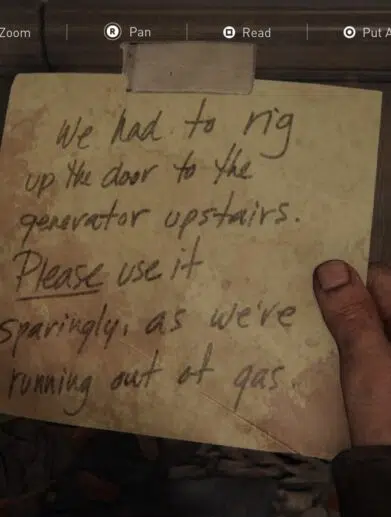 Zoom R Pan Read Put A
We had to rig
up the door to the
generator upstairs.
Please use it
sparingly, as we've
running out of gas.